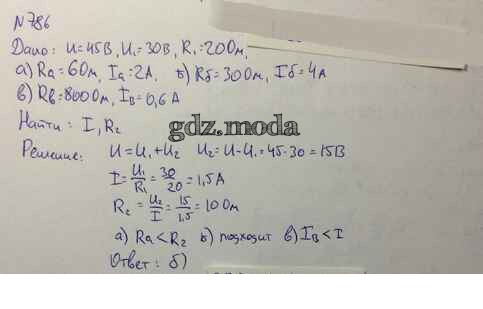 N 786
Дано: U=45В, U₁=30В, R₁=20Ом,
а) Rа=6Ом, Iа=2А, б) Rб=30Ом, Iб=4А
в) Rв=800Ом, Iв=0,6 А
Найти: I, R₂
gdz.moda
Решение: U=U₁+U₂ U₂=U-U₁=45-30=15В
I=U₁/R₁=30/20=1,5А
R₂=U₂/I=15/1,5=10Ом
а) Rа<R₂ б) подходит в) Iв<I
Ответ: б)